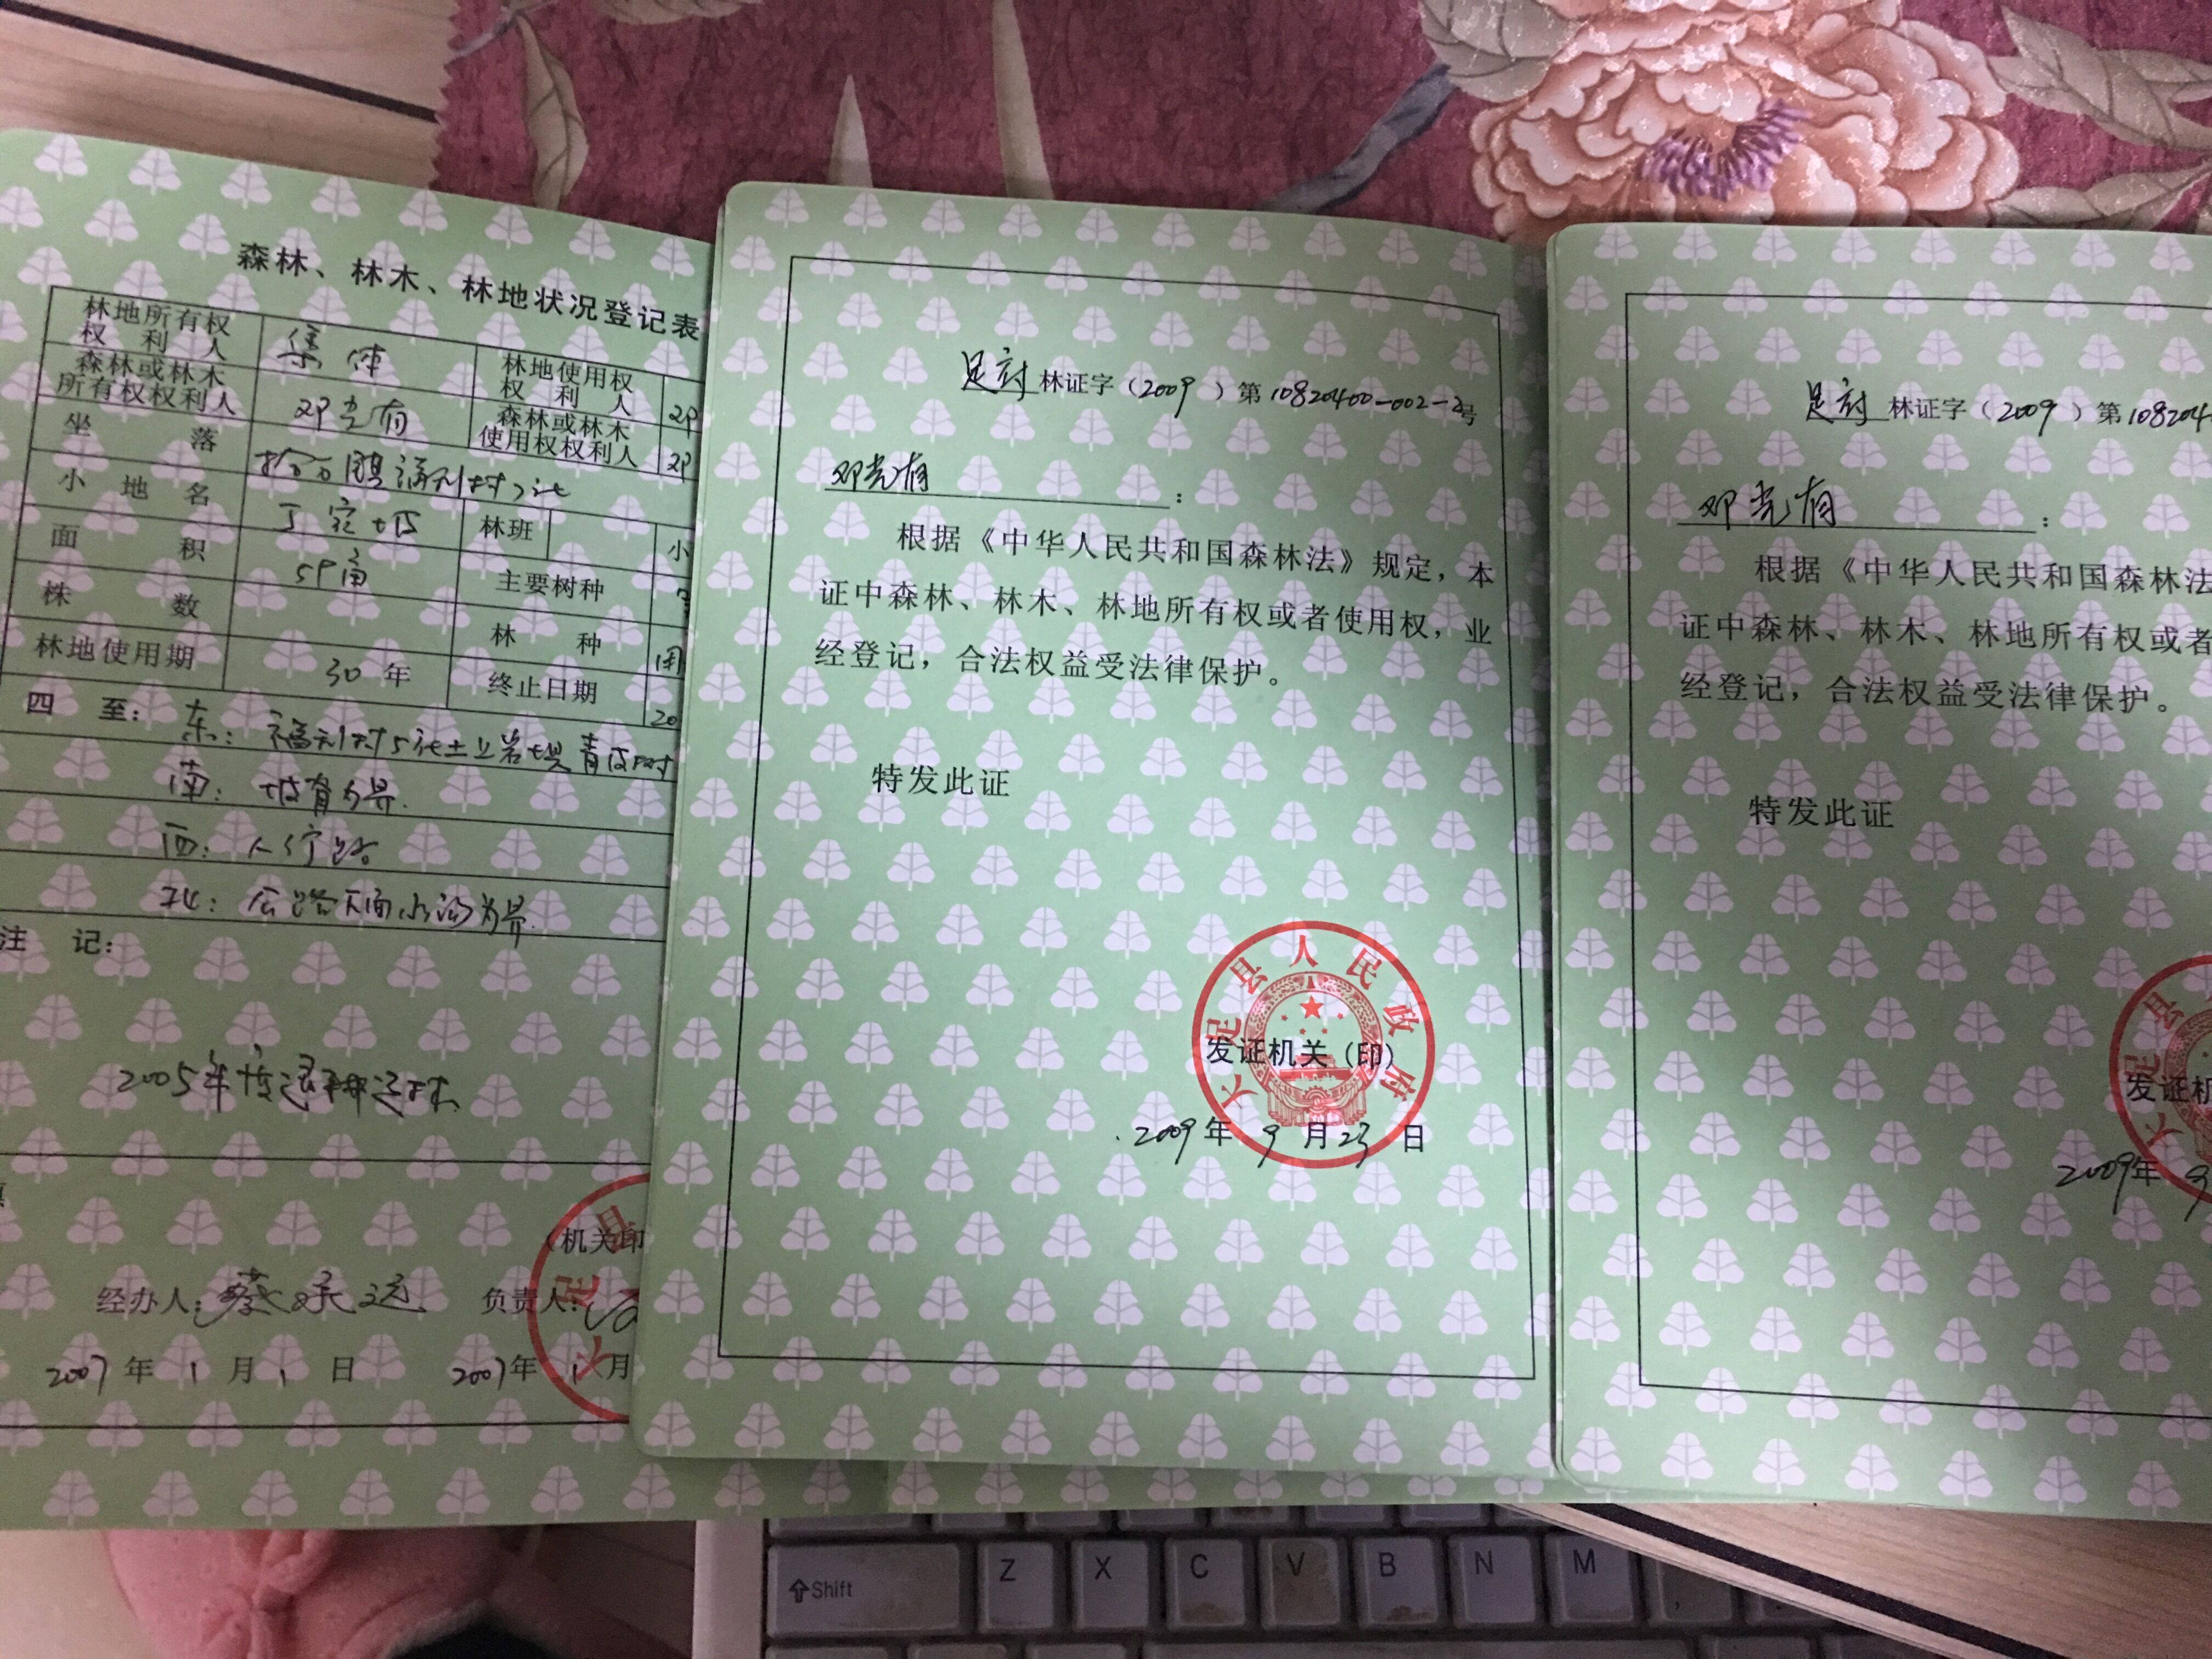 森林、林木、林地状况登记表
林地所有权权利人 集体 林地使用权权利人 邓
森林或林木所有权权利人 邓光有 森林或林木使用权权利人 邓
坐落
小地名 林班 小
面积 亩 主要树种
株数 林种
林地使用期 30年 终止日期 20
四至: 东: 福利村5社土
南: 坡脊为界.
西: 人行路
北: 公路下面水沟为界.
注记:
2005年度退耕还林
(机关印
经办人: 蔡 负责人:
2007年1月1日 2007年1月
足府林证字(2009)第10820400-002-2号
邓光有:
根据《中华人民共和国森林法》规定,本
证中森林、林木、林地所有权或者使用权,业
经登记,合法权益受法律保护。
特发此证
大足县人民政府
发证机关(印)
2009年9月23日
足府林证字(2009)第108204
邓光有:
根据《中华人民共和国森林法
证中森林、林木、林地所有权或者
经登记,合法权益受法律保护。
特发此证
大足县
发证机
2009年9
Shift Z X C V B N M